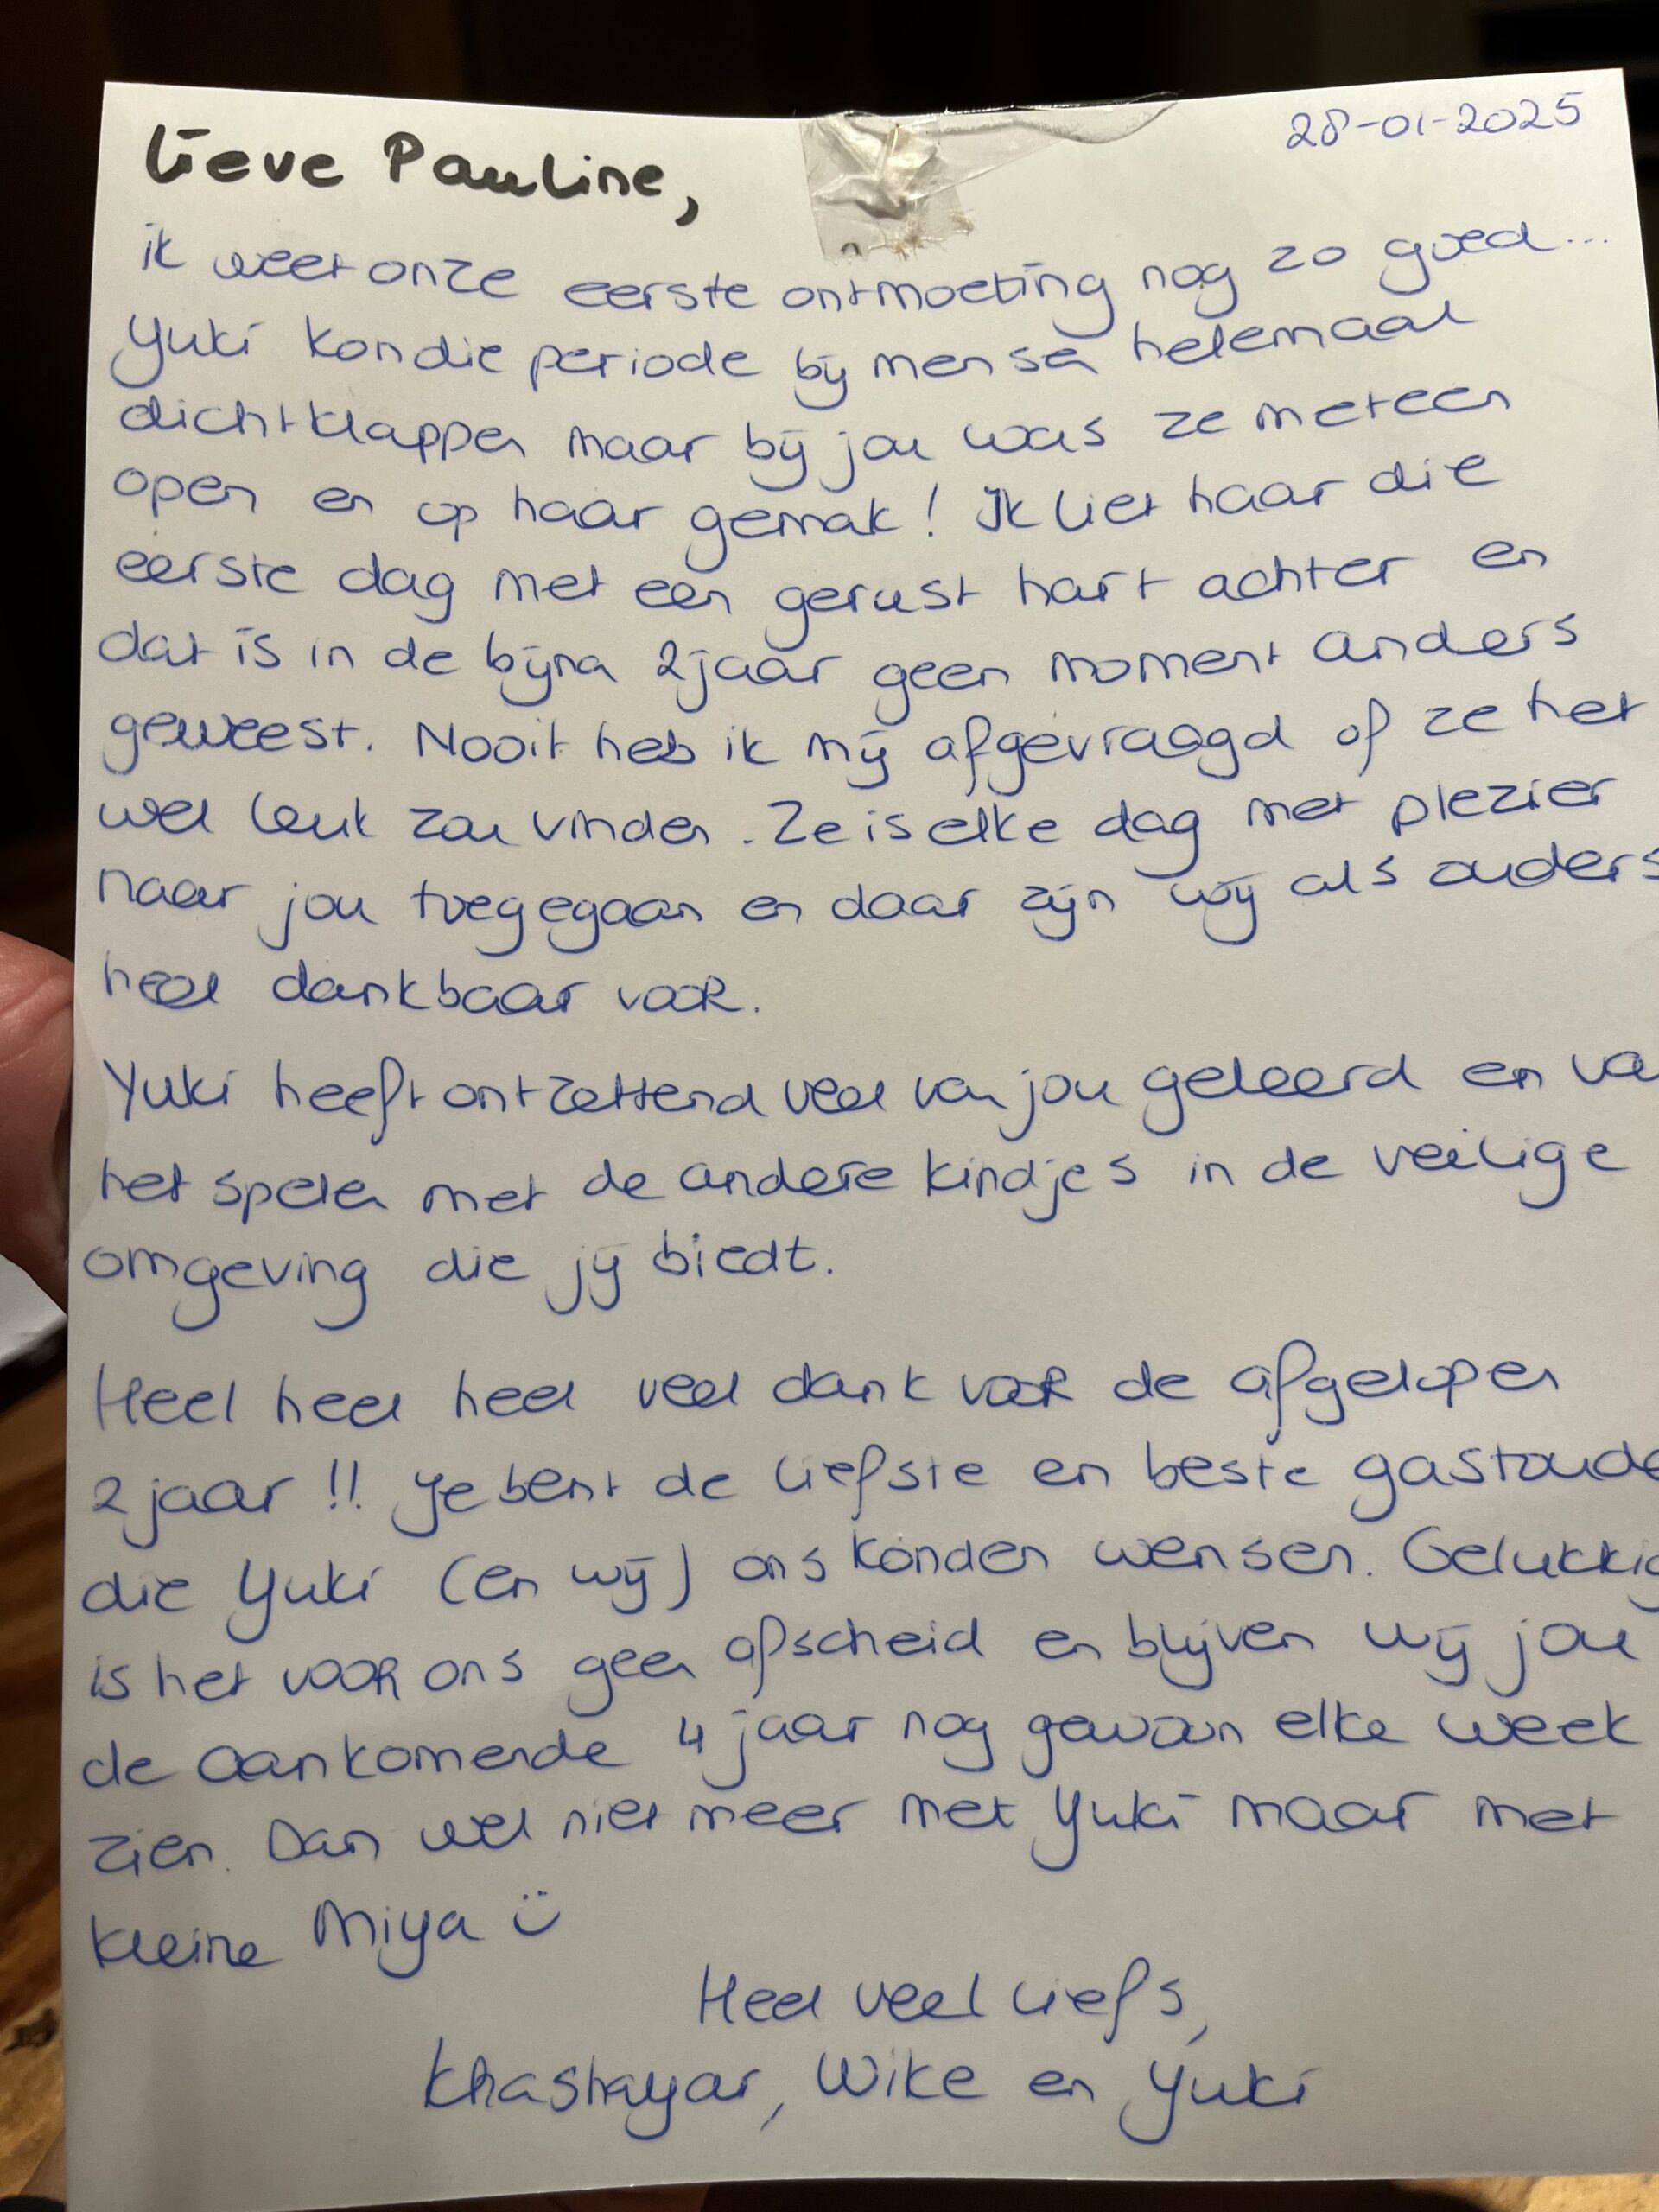 28-01-2025
Lieve Pauline,
ik weet onze eerste ontmoeting nog zo goed...
Yuki kon die periode bij mensen helemaal
dichtklappen maar bij jou was ze meteen
open en op haar gemak! Ik liet haar die
eerste dag met een gerust hart achter en
dat is in de bijna 2 jaar geen moment anders
geweest. Nooit heb ik mij afgevraagd of ze het
wel leuk zou vinden. Ze is elke dag met plezier
naar jou toegegaan en daar zijn wij als ouders
heel dankbaar voor.
Yuki heeft ontzettend veel van jou geleerd en va
het spelen met de andere kindjes in de veilige
omgeving die jij biedt.
Heel heel heel veel dank voor de afgelopen
2 jaar!! Je bent de liefste en beste gastoude
die Yuki (en wij) ons konden wensen. Gelukkig
is het voor ons geen afscheid en blijven wij jou
de aankomende 4 jaar nog gewoon elke week
zien. Dan wel niet meer met Yuki maar met
kleine Miya ☺
Heel veel liefs,
Khashayar, Wike en Yuki